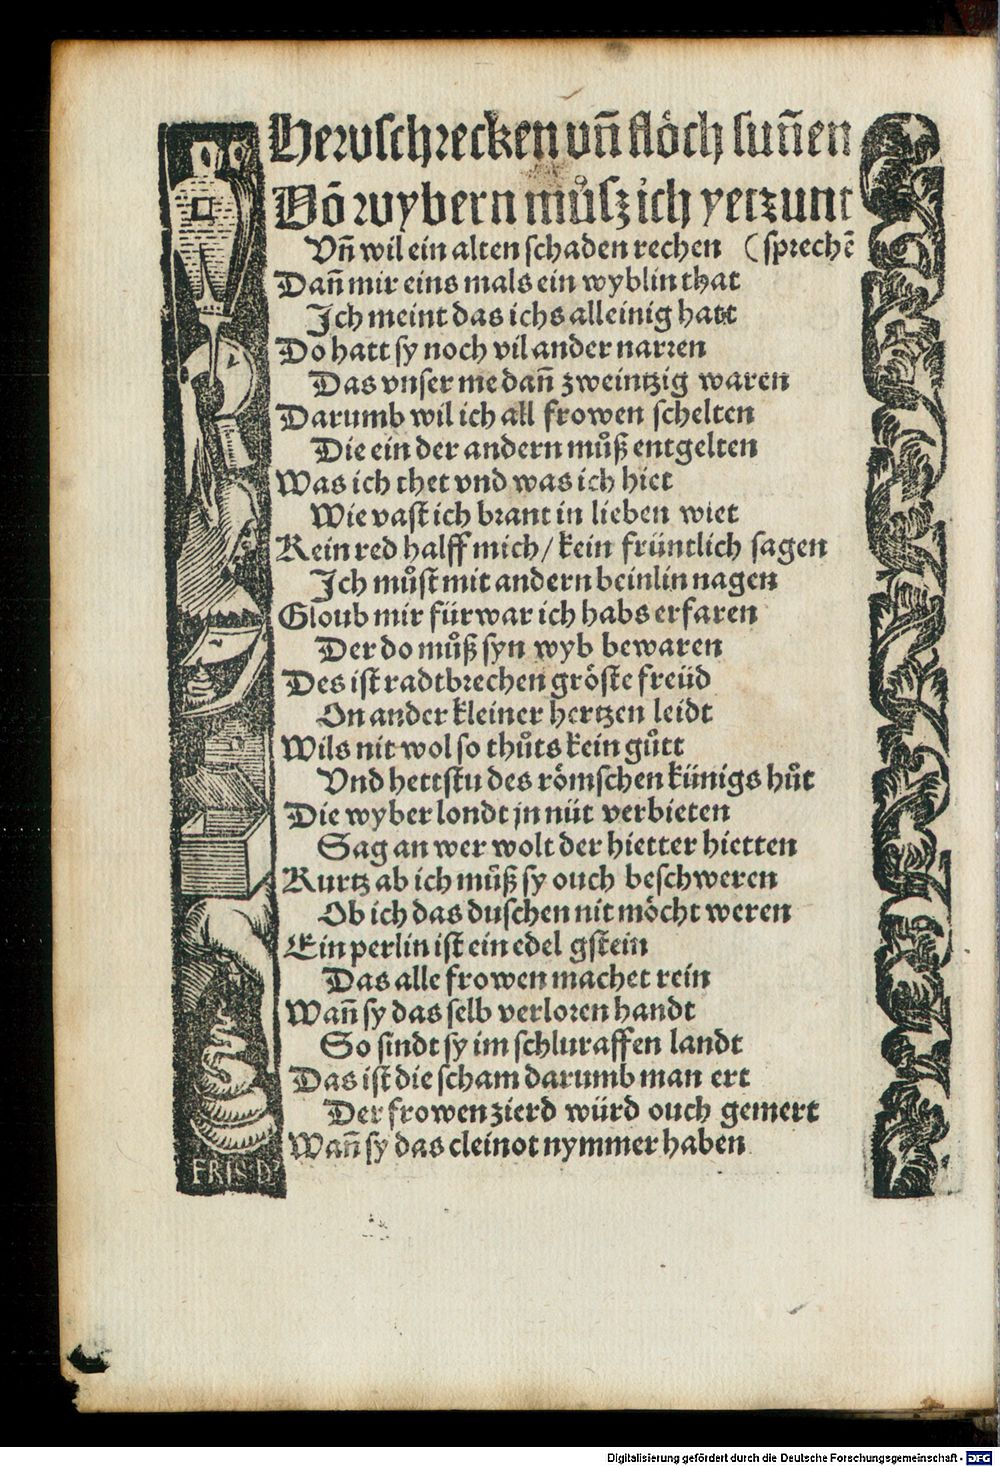 Hewschrecken vñ flöch suñen
Võ wybern můsz ich yetzunt
Vñ wil ein alten schaden rechen (sprechẽ
Dañ mir eins mals ein wyblin that
Ich meint das ichs alleinig hatt
Do hatt sy noch vil ander narren
Das vnser me dañ zweintzig waren
Darumb wil ich all frowen schelten
Die ein der andern můß entgelten
Was ich thet vnd was ich hiet
Wie vast ich brant in lieben wiet
Kein red halff mich / kein früntlich sagen
Ich můst mit andern beinlin nagen
Gloub mir fürwar ich habs erfaren
Der do můß syn wyb bewaren
Des ist radtbrechen gröste freüd
On ander kleiner hertzen leidt
Wils nit wol so thůts kein gůtt
Vnd hettstu des römschen künigs hůt
Die wyber londt jn nüt verbieten
Sag an wer wolt der hietter hietten
Kurtz ab ich můß sy ouch beschweren
Ob ich das duschen nit möcht weren
Ein perlin ist ein edel gstein
Das alle frowen machet rein
Wañ sy das selb verloren handt
So sindt sy im schluraffen landt
Das ist die scham darumb man ert
Der frowen zierd würd ouch gemert
Wañ sy das cleinot nymmer haben
FRIS D
Digitalisierung gefördert durch die Deutsche Forschungsgemeinschaft - DFG